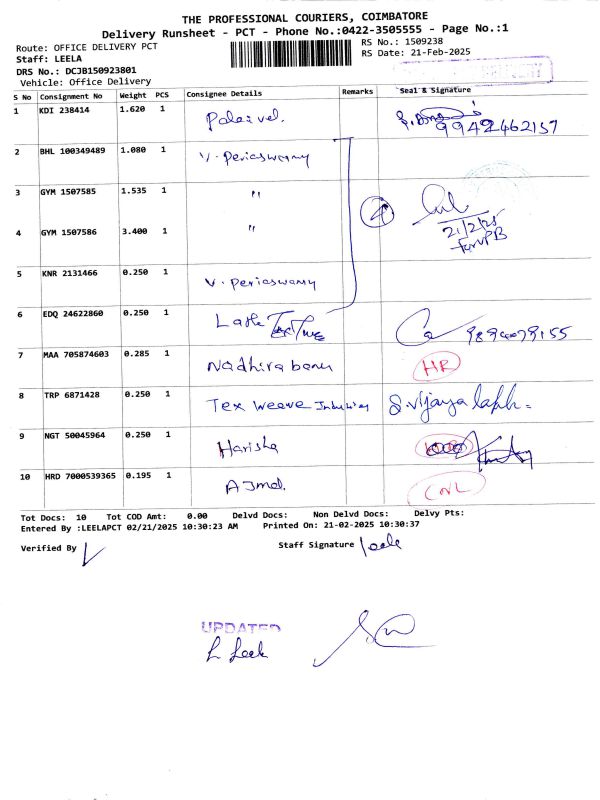 THE PROFESSIONAL COURIERS, COIMBATORE
Delivery Runsheet - PCT - Phone No.:0422-3505555 - Page No.:1
Route: OFFICE DELIVERY PCT
RS No.: 1509238
Staff: LEELA
RS Date: 21-Feb-2025
DRS No.: DCJB150923801
Vehicle: Office Delivery
S No Consignment No Weight PCS Consignee Details Remarks Seal & Signature
1 KDI 238414 1.620 1 Palaivel. 9942462157
2 BHL 100349489 1.080 1 V. Periaswamy
3 GYM 1507585 1.535 1 "
4 GYM 1507586 3.400 1 " 4 21/2/25
5 KNR 2131466 0.250 1 V. Periaswamy
6 EDQ 24622860 0.250 1
7 MAA 705874603 0.285 1 Nadhira banu HR
8 TRP 6871428 0.250 1 Tex Weave S. Vijaya
9 NGT 50045964 0.250 1 Harisha
10 HRD 7000539365 0.195 1 AJmal. CNL
Tot Docs: 10 Tot COD Amt: 0.00 Delvd Docs: Non Delvd Docs: Delvy Pts:
Entered By :LEELAPCT 02/21/2025 10:30:23 AM Printed On: 21-02-2025 10:30:37
Verified By
Staff Signature leela
UPDATED